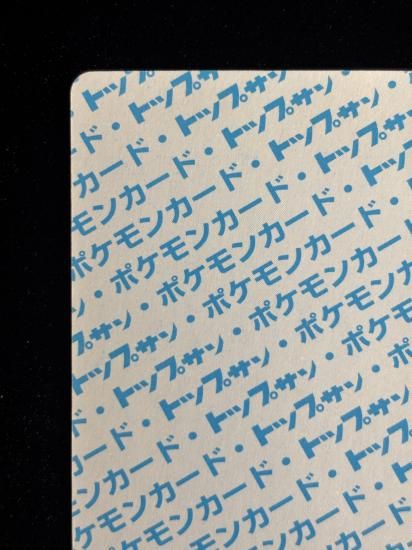 トップサン
ド・トップサン
カード・トップサン
モンカード・トップサン
ポケモンカード・トップサン
・ポケモンカード・
サン・ポケモンカード・
トップサン・ポケモンカード
トップサン・ポケモン
ド・トップサン・ポケモン
カード・トップサン
モンカード・トップサン
ポケモンカード・トップ
ポケモンカード・